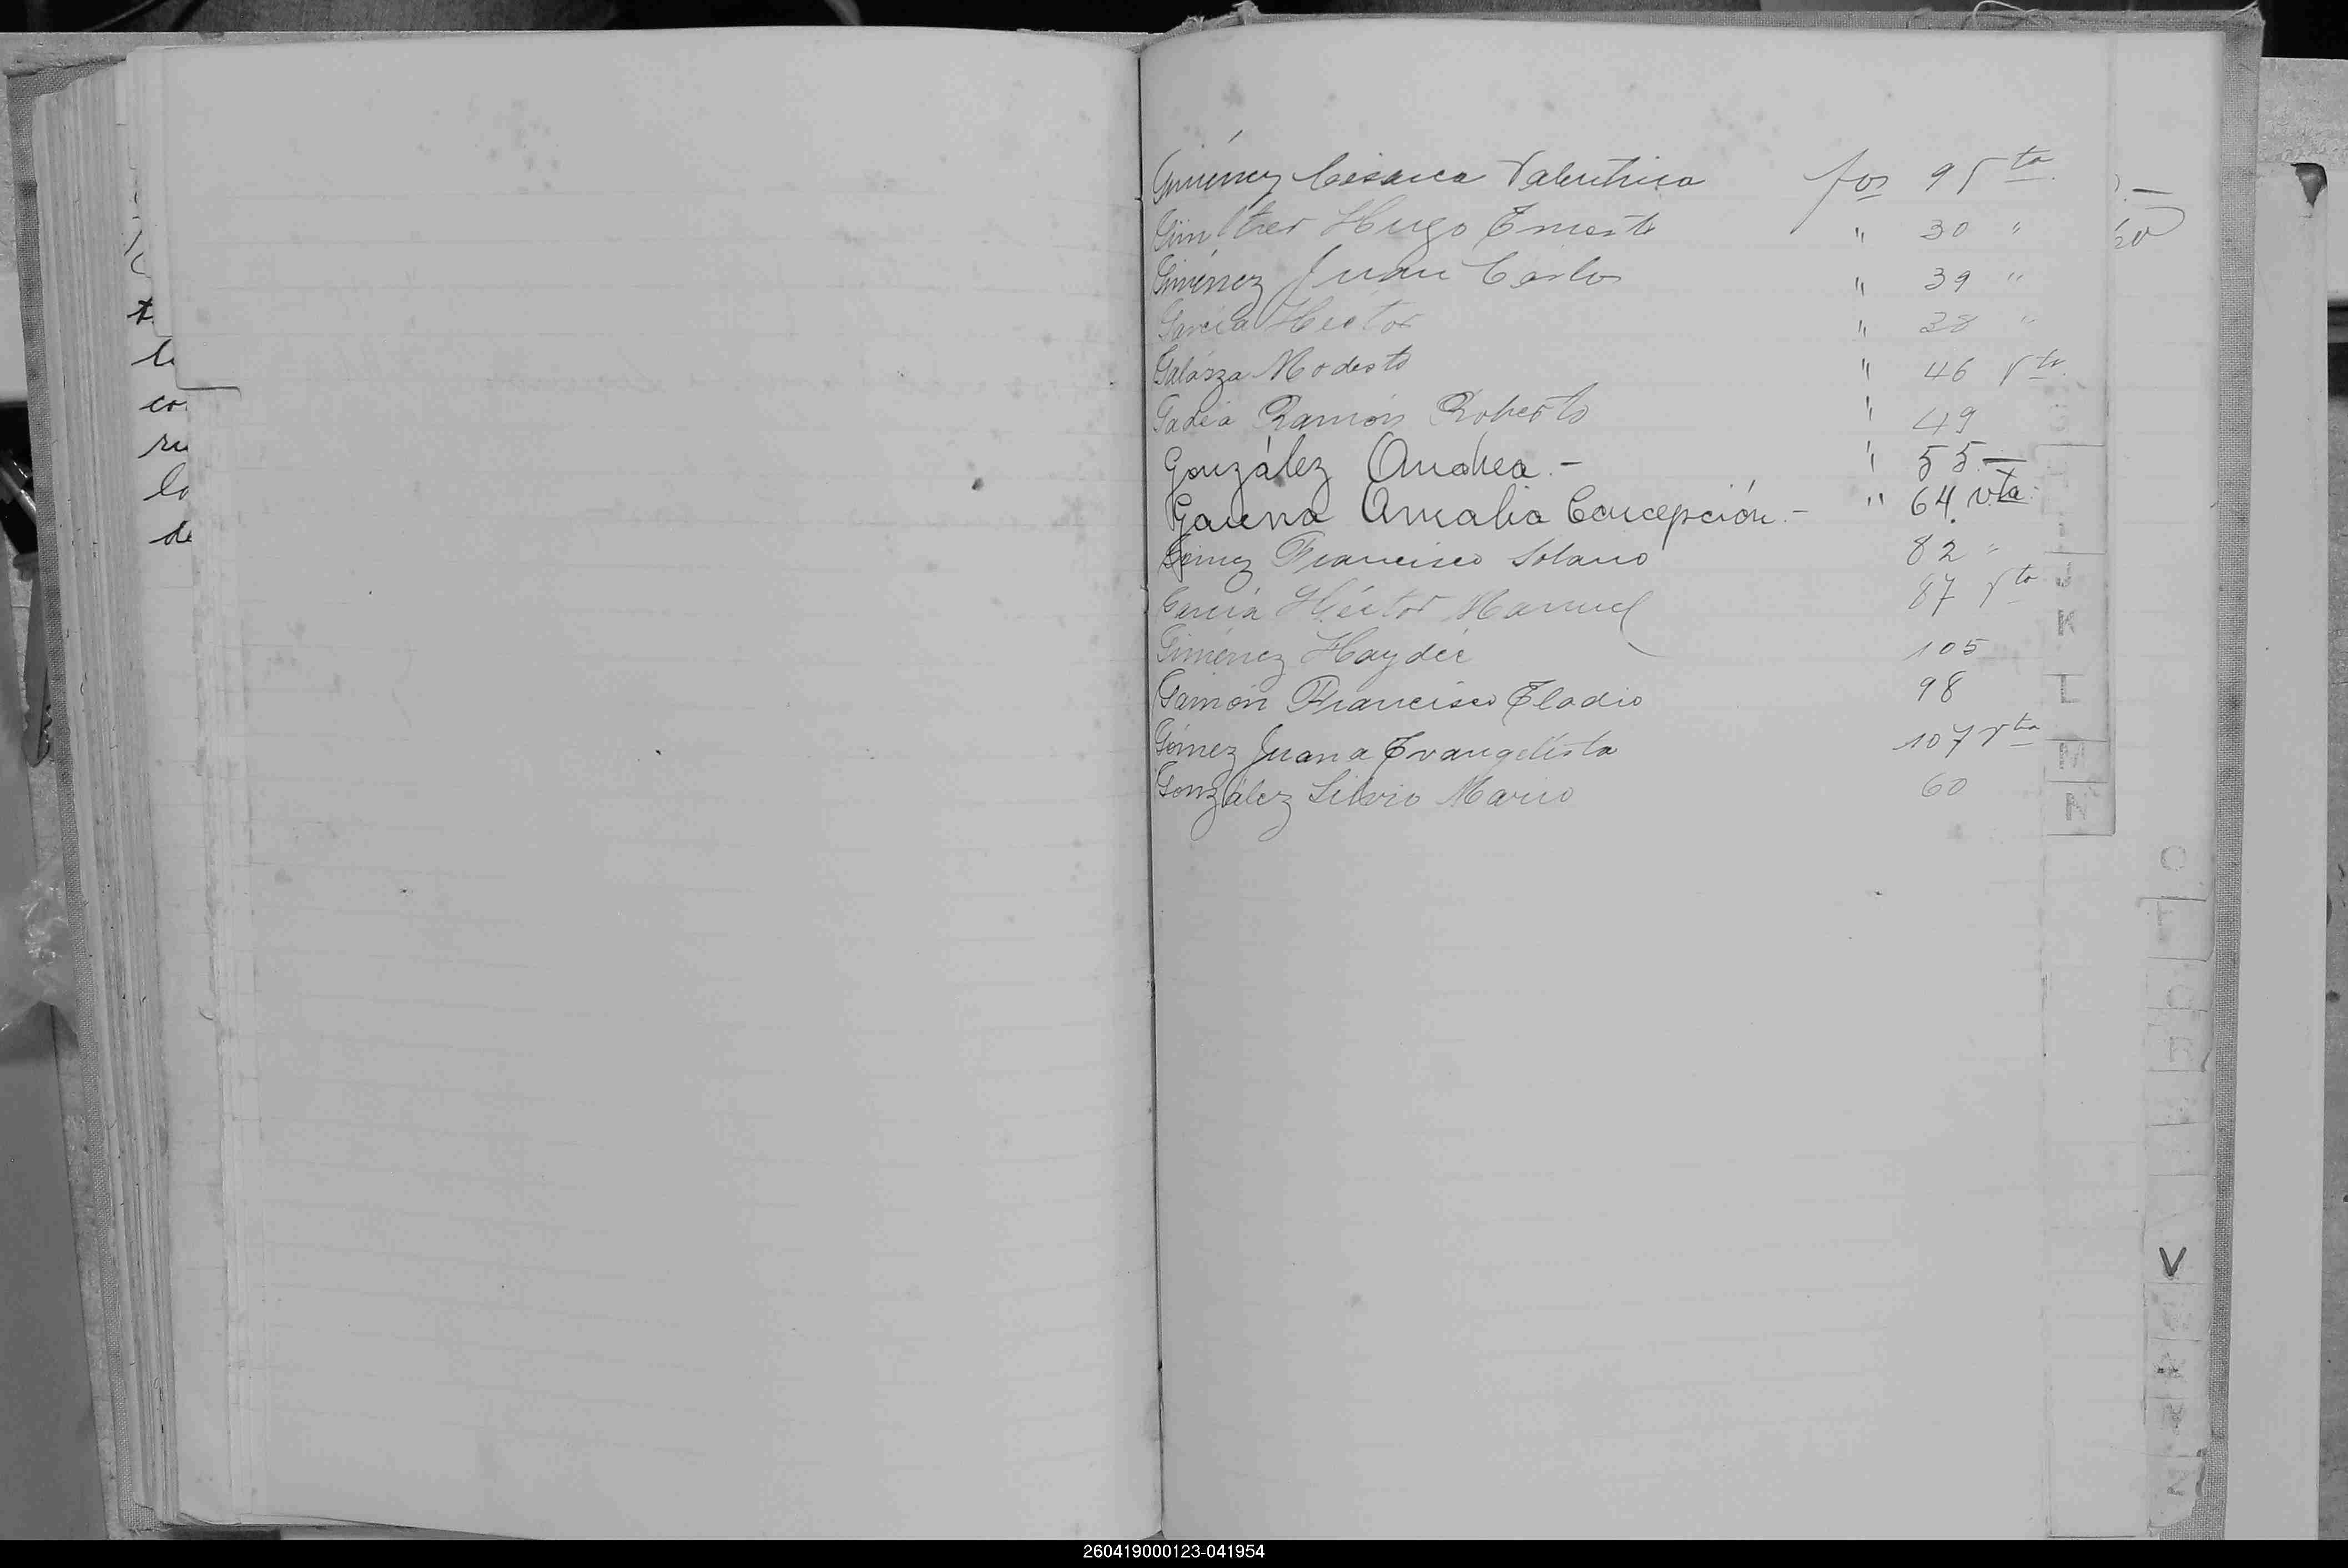 Giménez Cesarea Valentina fos 9 Vta.
Günther Hugo Ernesto " 30 "
Giménez Juan Carlos " 39 "
García Héctor " 38 "
Galarza Modesto " 46 Vta.
Gadea Ramón Roberto " 49
González Andrea.- " 55.-
Gauna Amalia Concepción.- " 64 vta.
Gómez Francisco Solano 82 "
García Héctor Manuel 87 Vta
Giménez Haydée 105
Gamón Francisco Eladio 98
Gómez Juana Evangelista 107 Vta
González Silvio Mario 60
t.
co
ru
lo
de
J
K
L
M
N
O
V
260419000123-041954